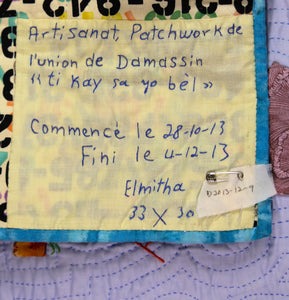 Artisanat, Patchwork de
l'union de Damassin
« ti kay sa yo bèl »
Commencé le 28-10-13
Fini le 4-12-13
Elmitha
33 x 30
D2013-12-9